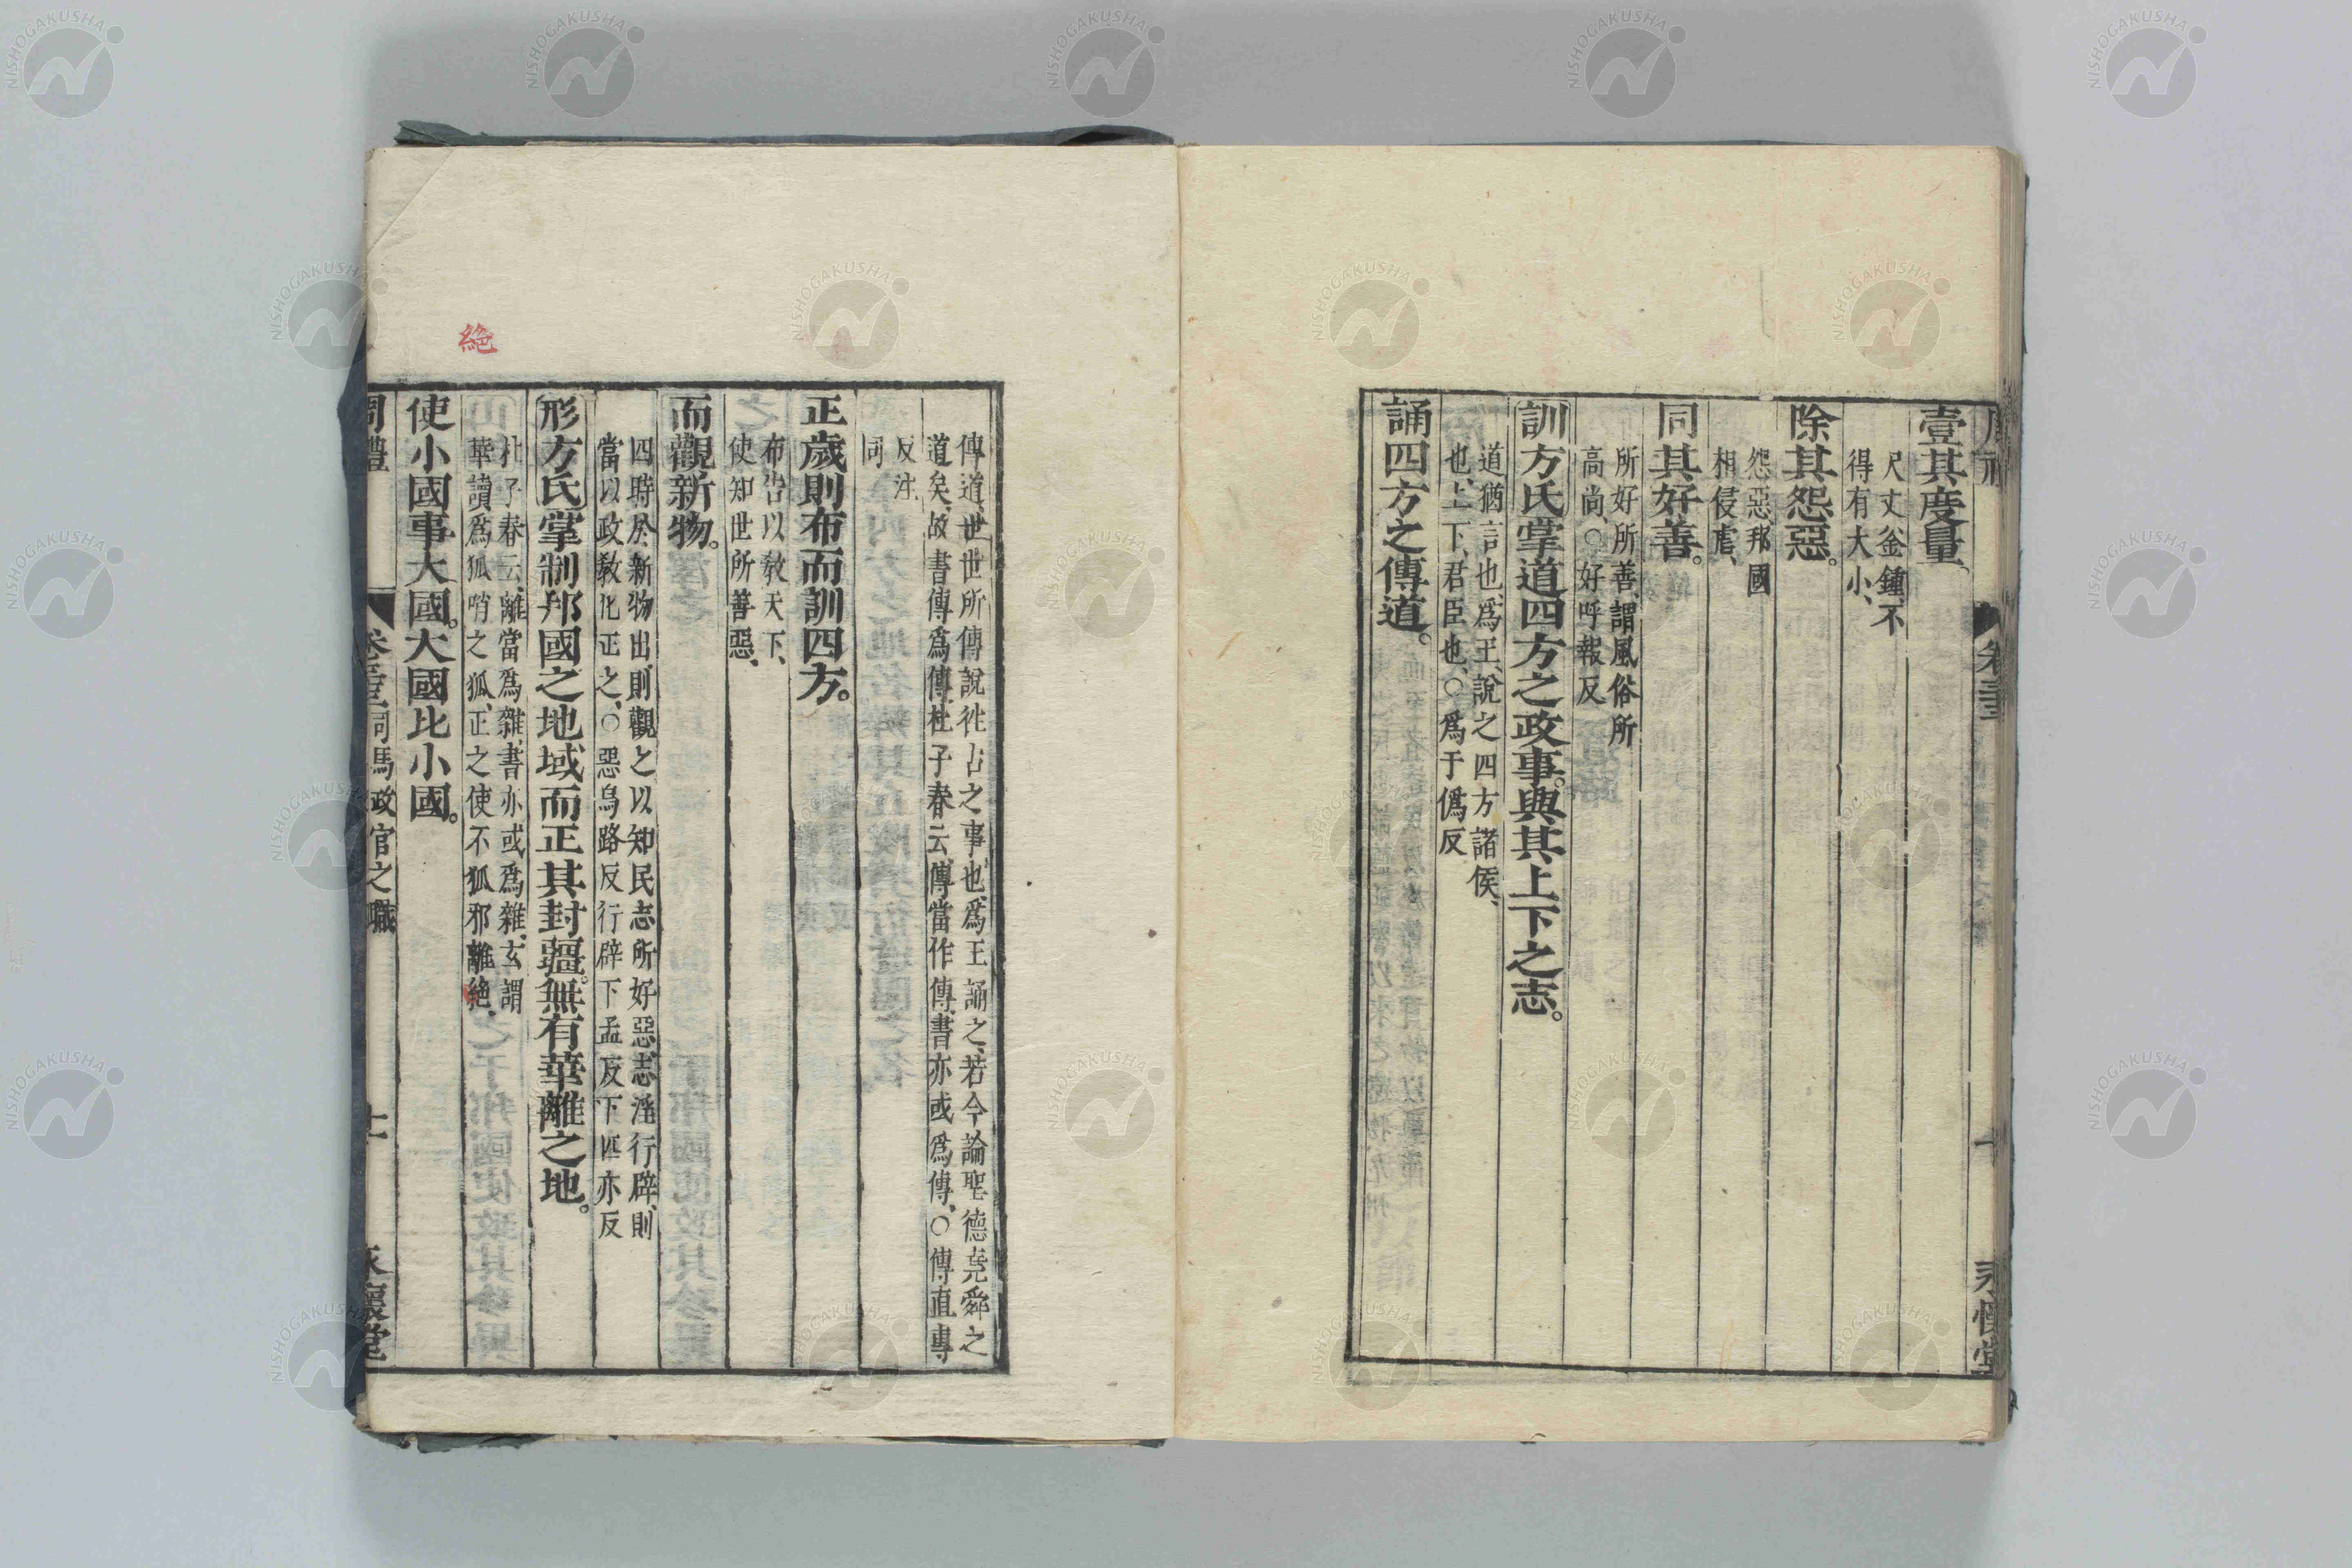 壹其度量、
尺丈釜鍾、不
得有大小、
除其怨惡。
怨惡、邦國
相侵虐、
同其好善。
所好所善、謂風俗所
高尚、○好呼報反
訓方氏掌道四方之政事。與其上下之志。
道猶言也、爲王、說之四方諸侯、
也、上下、君臣也、○爲于僞反
誦四方之傳道。
傳道、世世所傳說徃古之事也、爲王誦之、若今論聖德堯舜之
道矣、故書傳爲傅、杜子春云、傅當作傳、書亦或爲傳、○傳直專
反注
同
正歲則布而訓四方。
布告以敎天下、
使知世所善惡、
而觀新物。
四時於新物出、則觀之以知民志所好惡、志淫行辟、則
當以政敎化正之、○惡烏路反行辟下孟反下匹亦反
形方氏掌制邦國之地域而正其封疆。無有華離之地。
杜子春云、離當爲雜、書亦或爲雜、玄謂
華讀爲𠇗哨之𠇗、正之使不𠇗邪離絕、
使小國事大國。大國比小國。
周禮 卷三十三 司馬政官之職 十一 永懷堂
絕